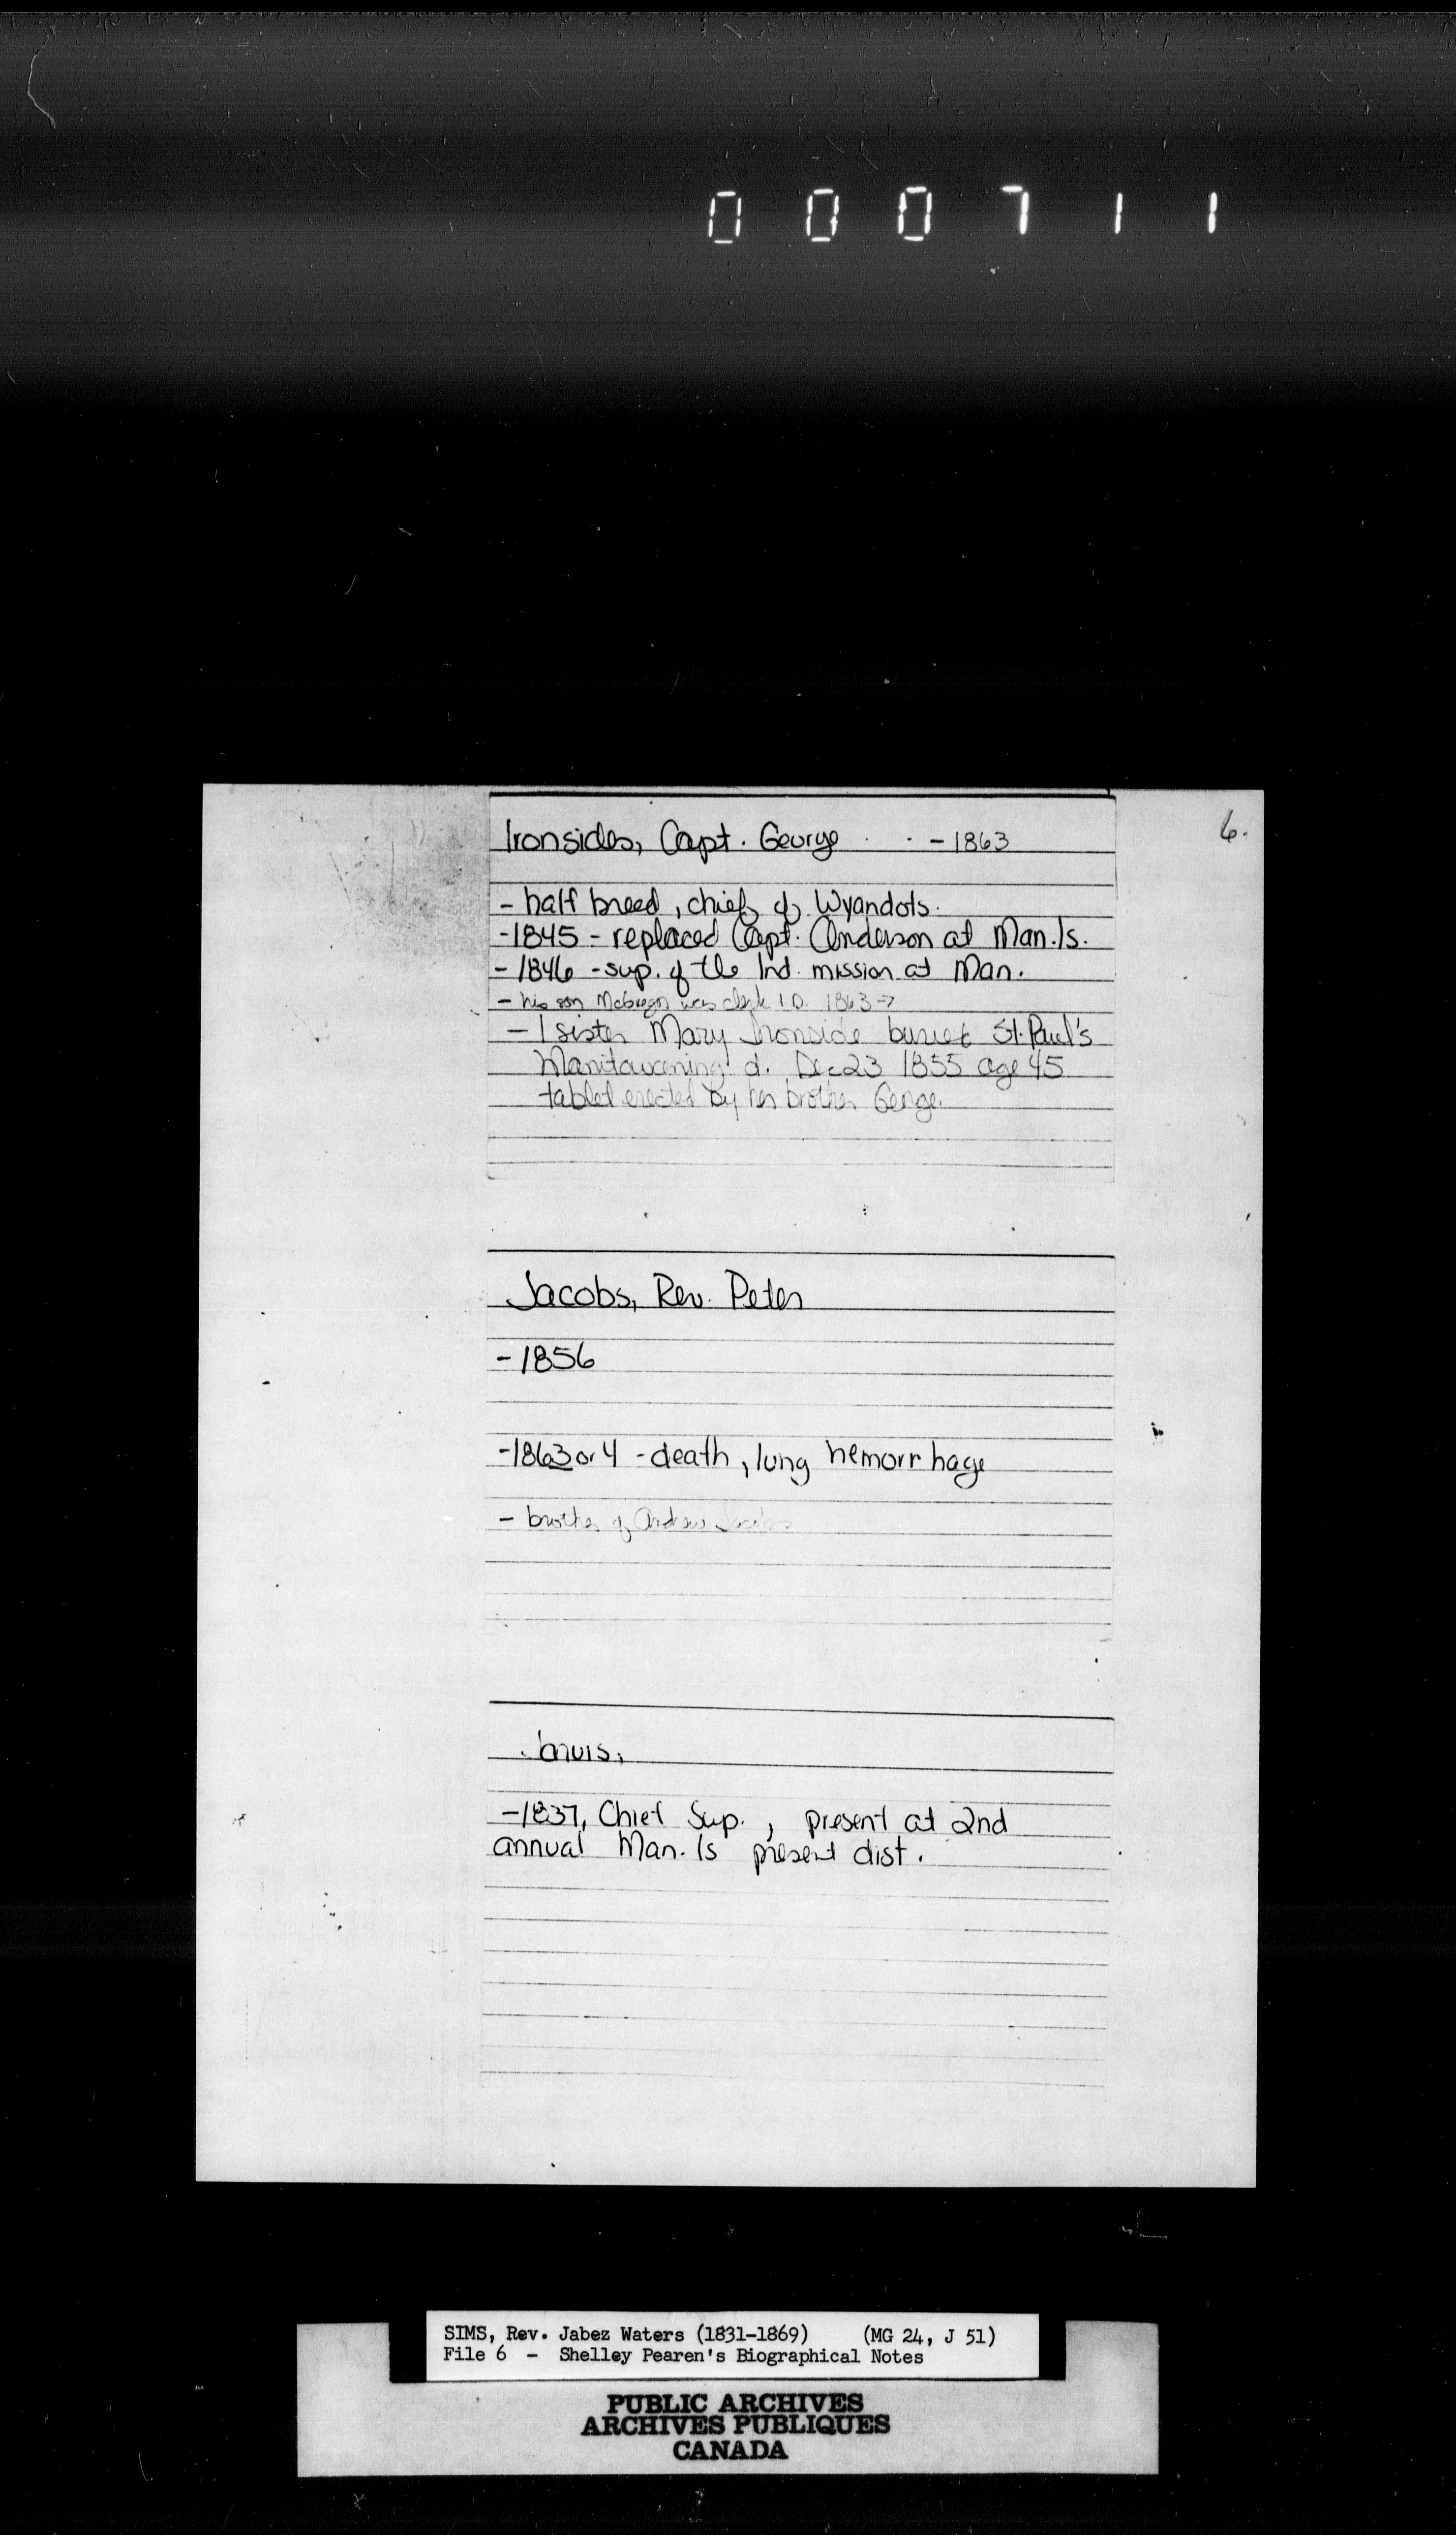 000711
6.
Ironsides, Capt. George - 1863
- half breed, chief of Wyandots.
-1845 - replaced Capt. Anderson at Man. Is.
- 1846 - sup. of the Ind. mission at Man.
- his son McGregor was clerk I.D. 1863→
- 1 sister Mary Ironside buried St. Paul's
Manitowaning d. Dec 23 1855 age 45
tablet erected by her brother George.
Jacobs, Rev. Peter
- 1856
-1863 or 4 - death, lung hemorrhage
- brother of Andrew Jacobs
Jarvis,
-1837, Chief Sup., present at 2nd
annual Man. Is present dist.
SIMS, Rev. Jabez Waters (1831-1869) (MG 24, J 51)
File 6 - Shelley Pearen's Biographical Notes
PUBLIC ARCHIVES
ARCHIVES PUBLIQUES
CANADA